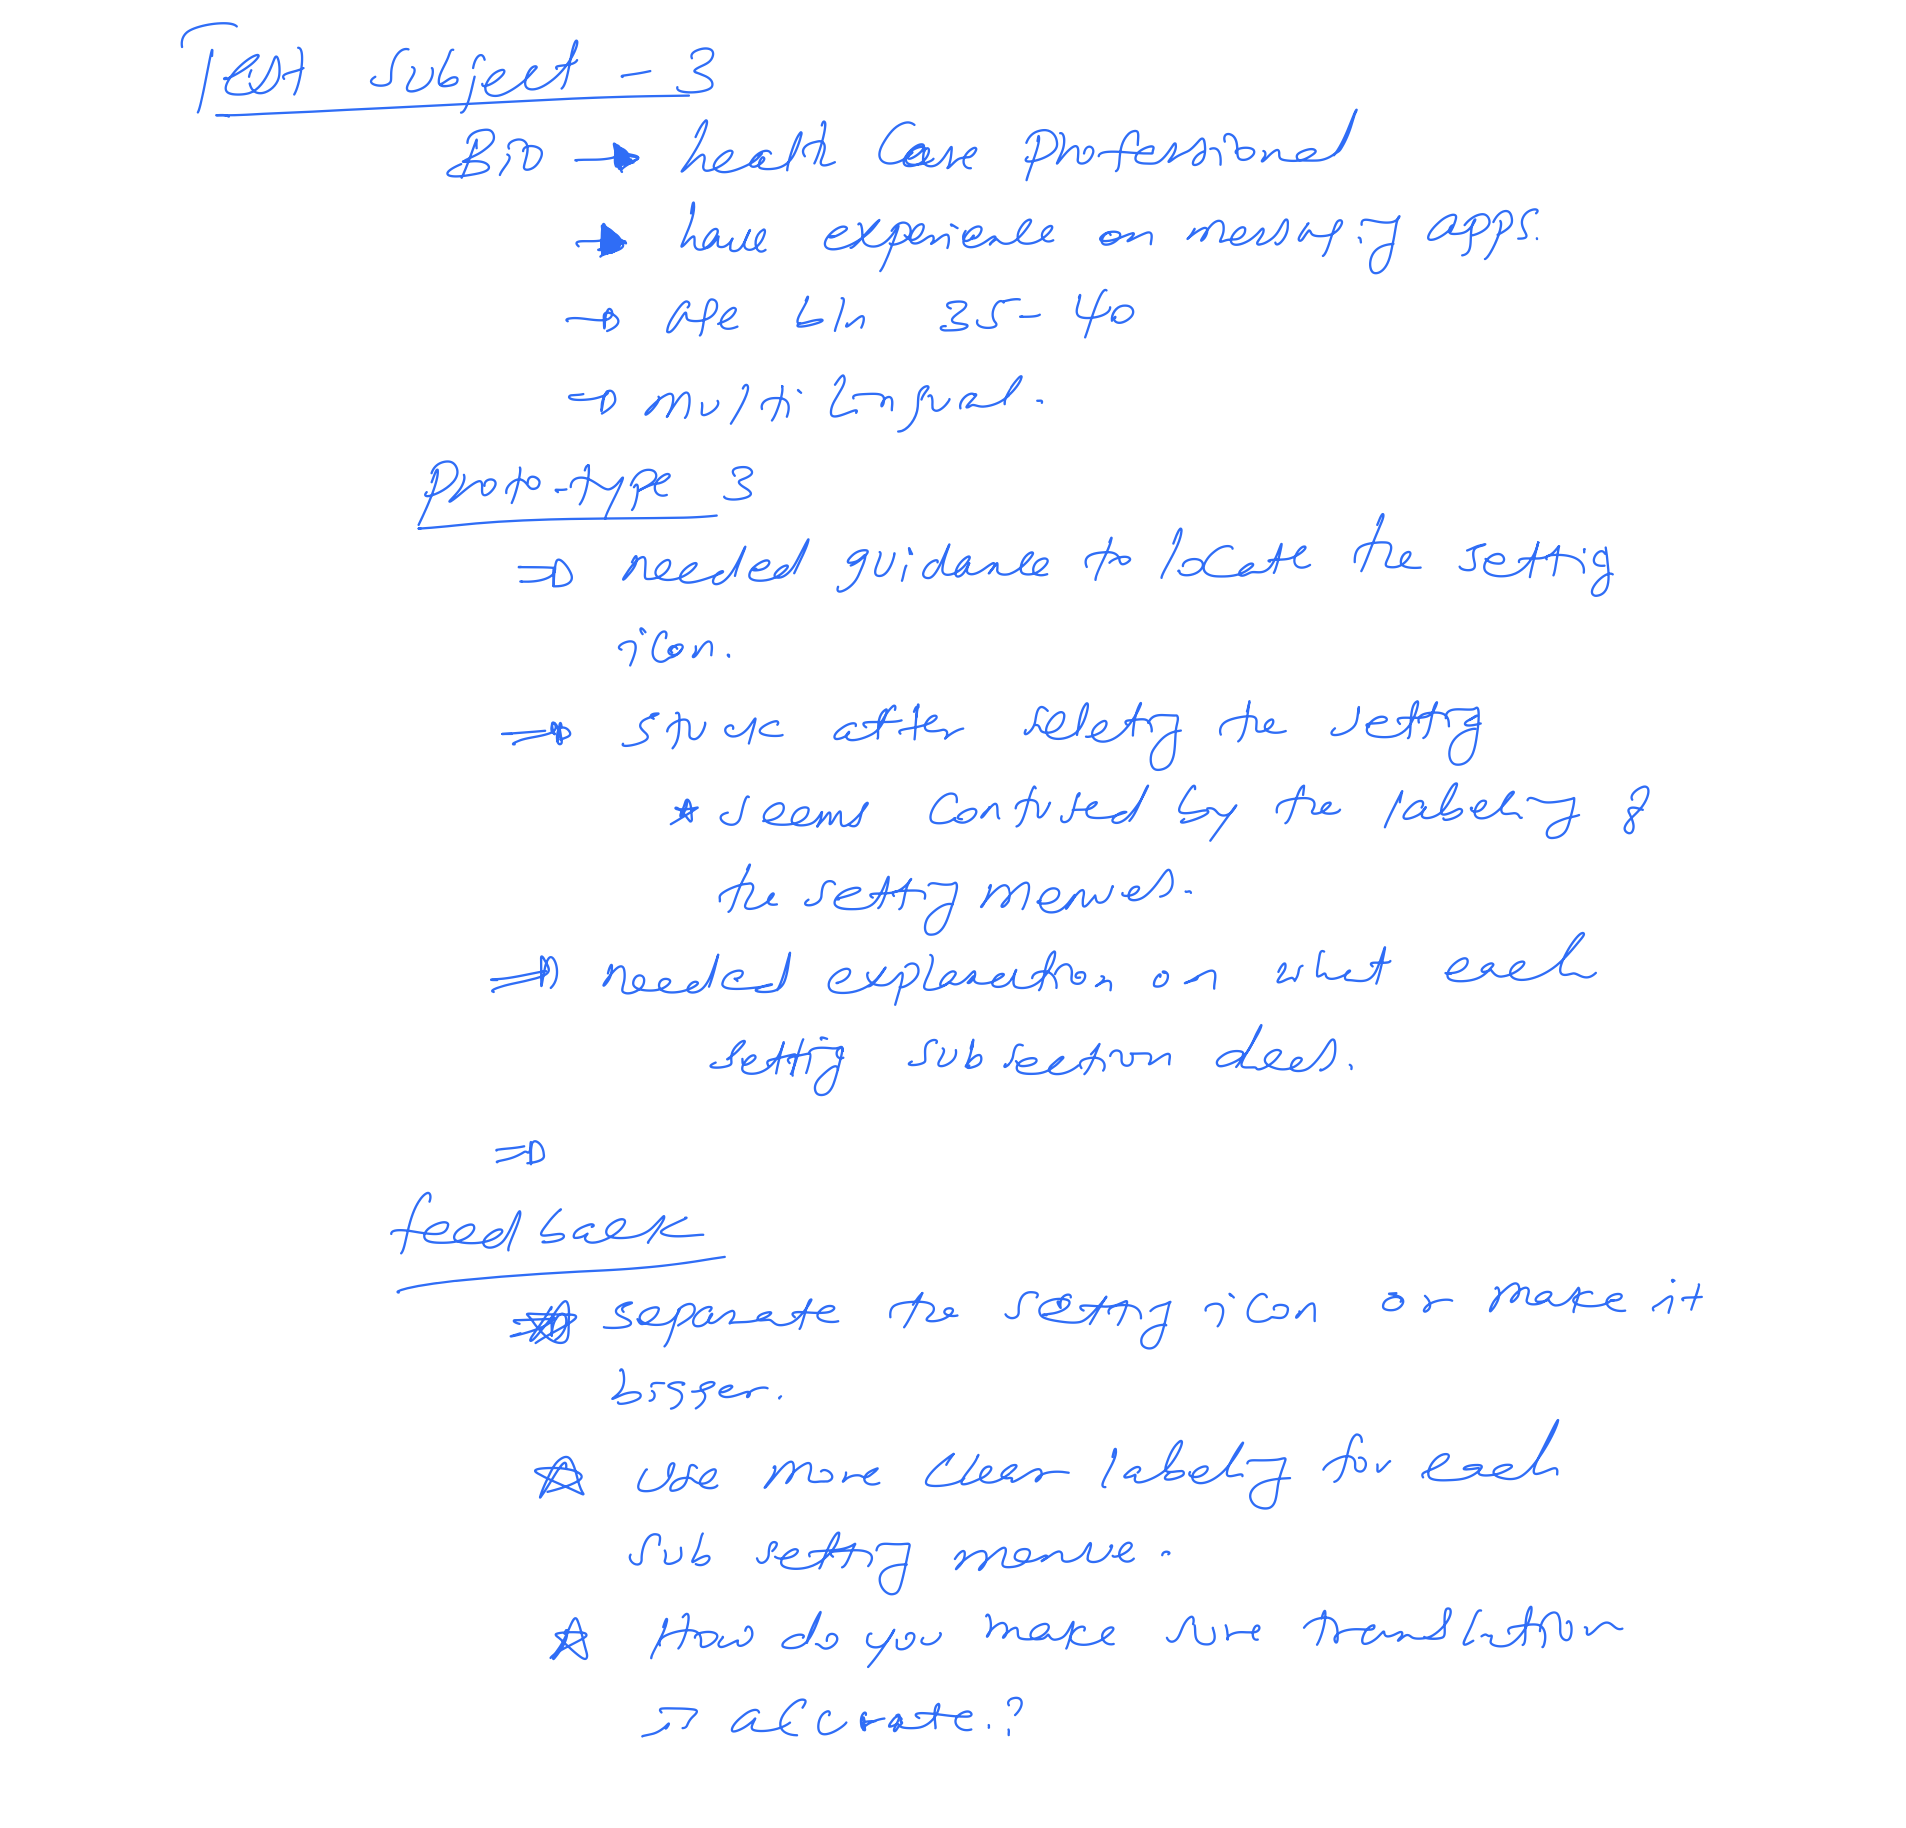 Test subject - 3
Bio → health Care professional
→ have experience on messaging apps.
→ age b/n 35-40
→ multi lingual.
Proto-type 3
⇒ needed guidance to locate the setting
icon.
⇒ stuck after seleting the setting
* seems confused by the labeling of
the setting menues.
⇒ needed explanation on what each
setting subsection does.
⇒
feedback
⇒ separate the setting icon or make it
bigger.
☆ use more clear labeling for each
sub setting menue.
☆ How do you make sure translation
is accurate.?